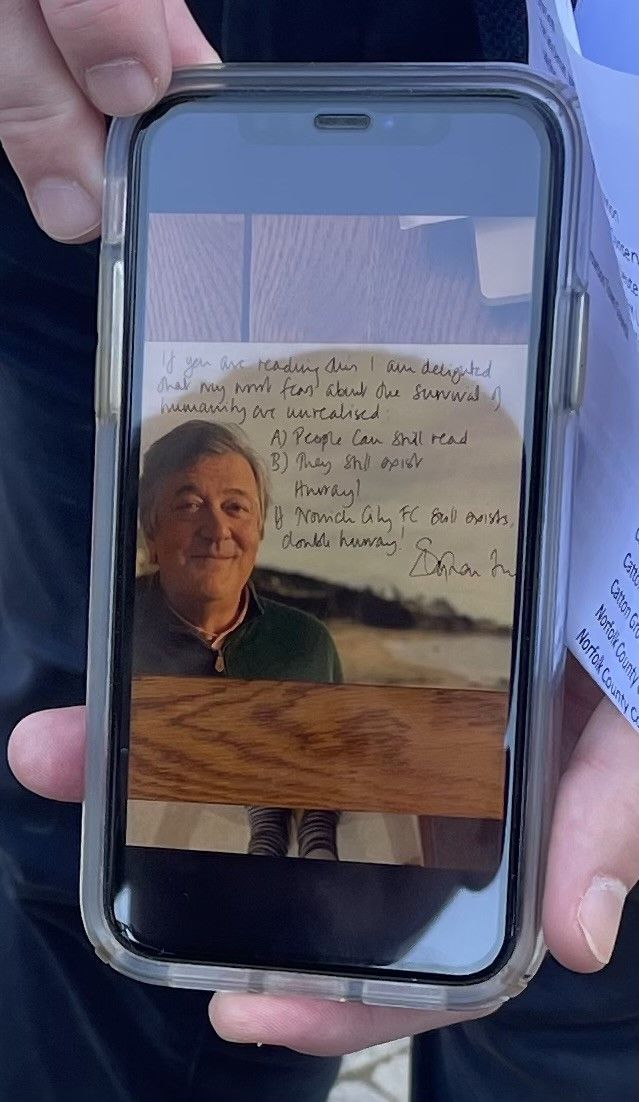 If you are reading this I am delighted
that my worst fears about the survival of
humanity are unrealised:
A) People can still read
B) They still exist
Hurray!
If Norwich City FC still exists,
double hurray!
Stephen
Catton Gr
Norfolk County
Norfolk County C